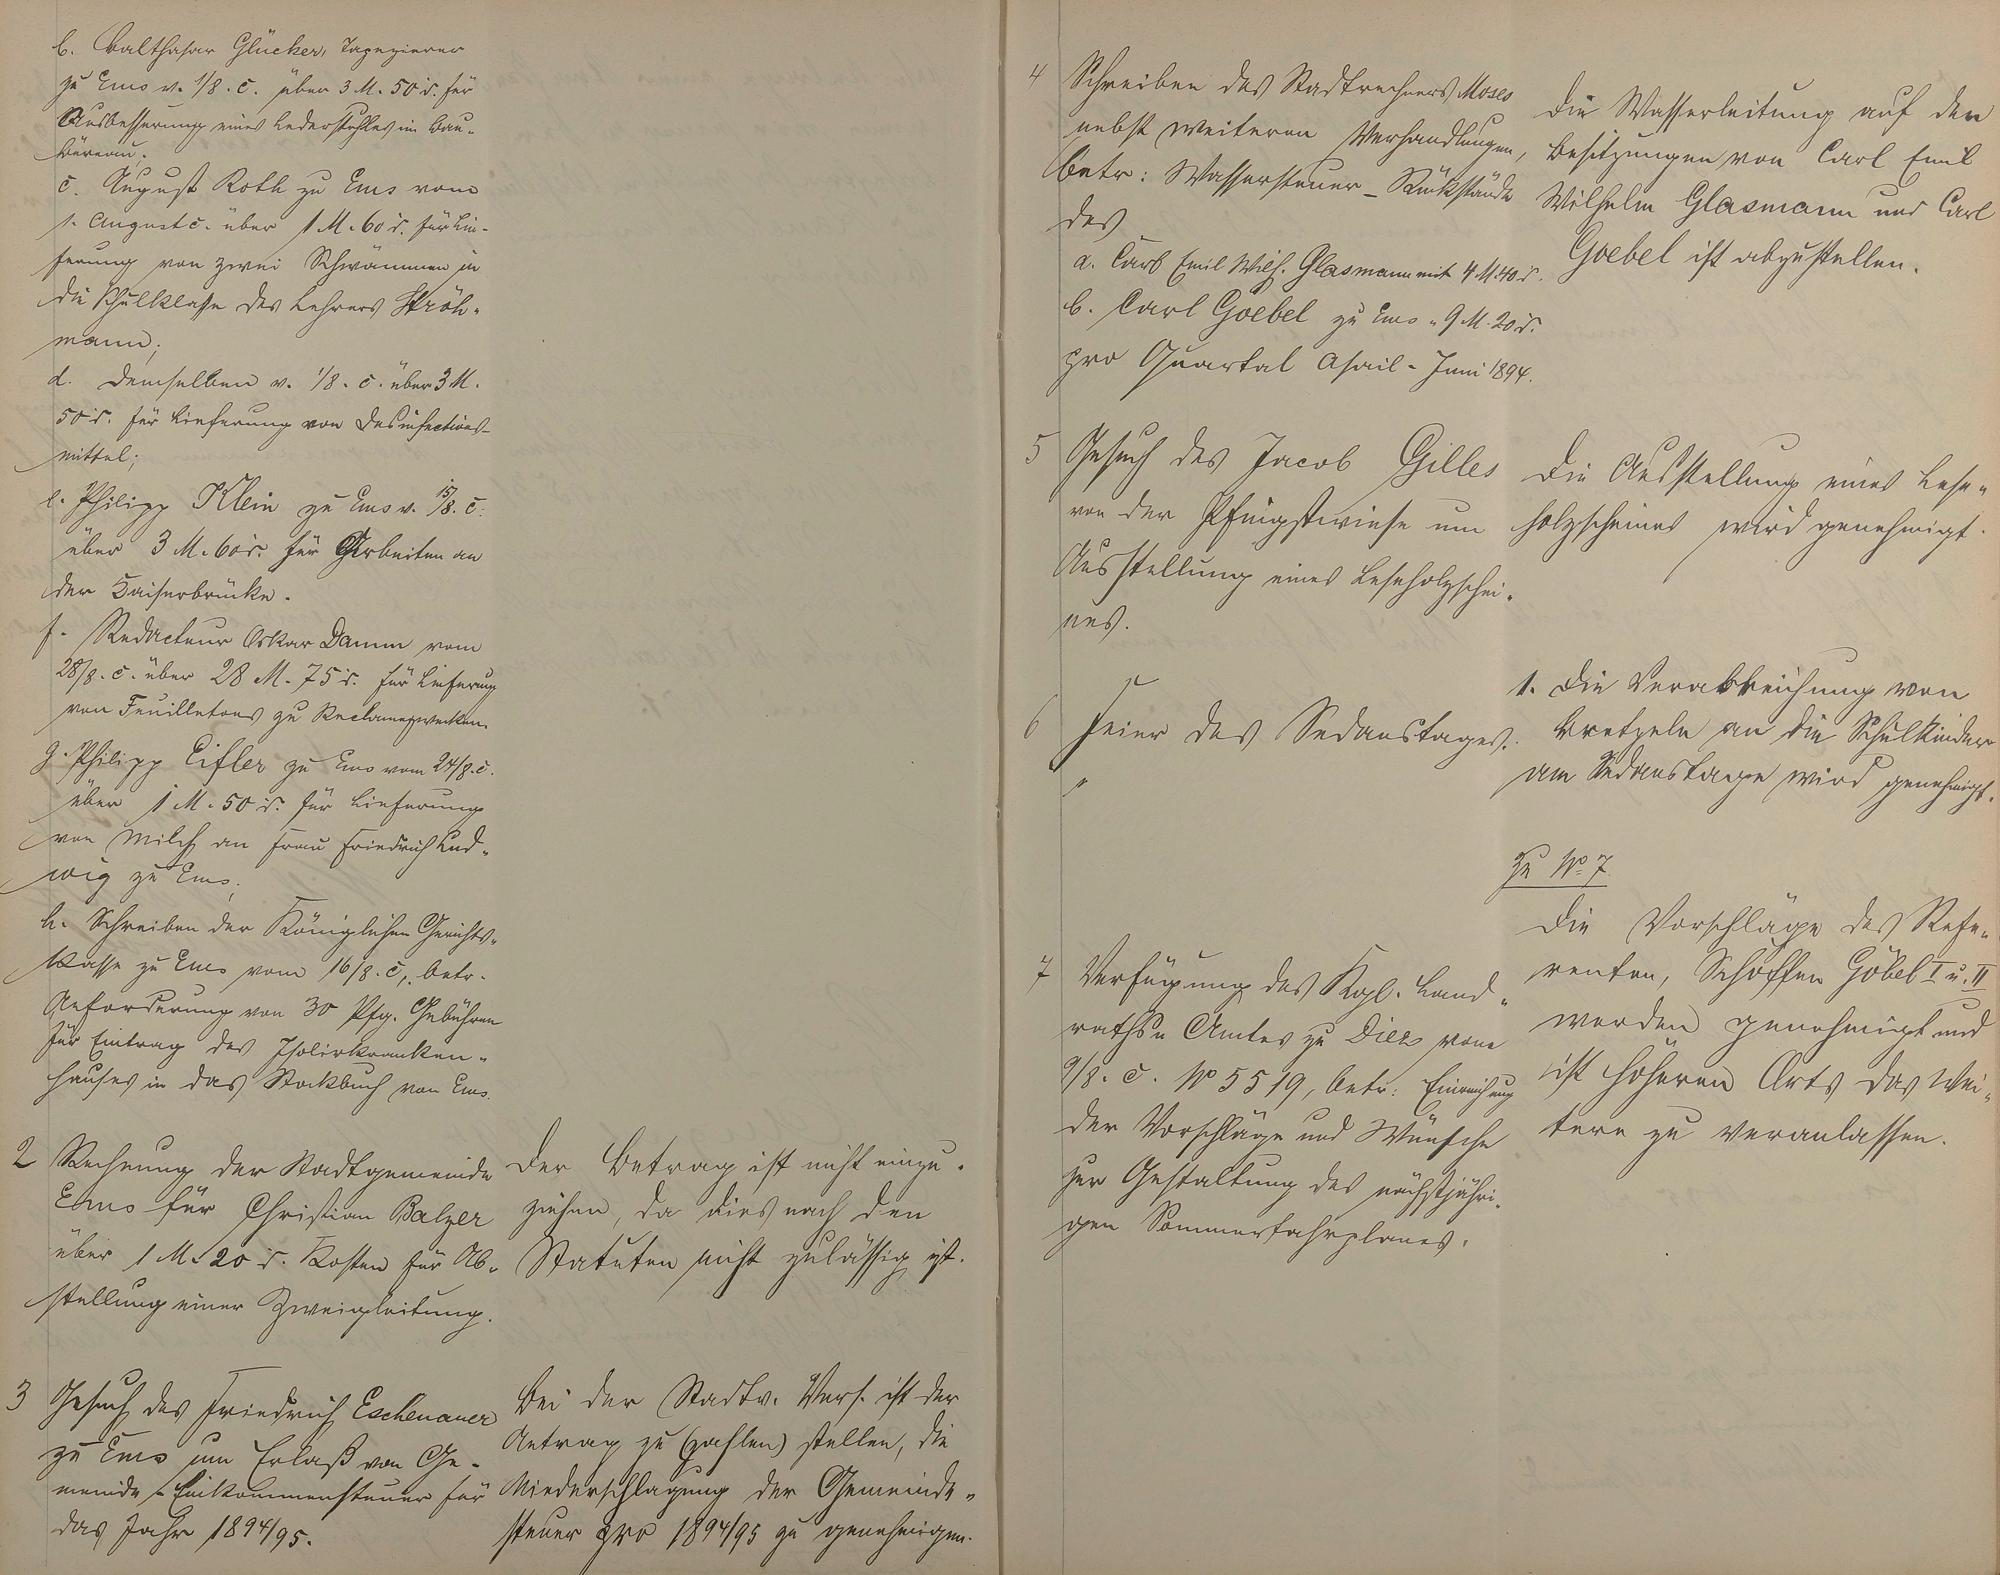 b. Balthasar Glücker, Tapezierer
zu Ems v. 1/8. c. über 3 M. 50 ₰. für
Ausbesserung eines Lederstuhles im Bau-
büreau;
c. August Roth zu Ems vom
1. August c. über 1 M. 60 ₰. für Lie-
ferung von zwei Schwämmen in
die Schulklasse des Lehrers Ströh-
mann;
d. demselben v. 1/8. c. über 3 M.
50 ₰. für Lieferung von Desinfections-
mittel;
e. Philipp Klein zu Ems v. 15/8. c.
über 3 M. 60 ₰. für Arbeiten an
der Kaiserbrücke.
f. Redacteur Oskar Damm vom
28/8. c. über 28 M. 75 ₰. für Lieferung
von Feuilletons zu Reclamezwecken.
g. Philipp Eifler zu Ems vom 24/8. c.
über 1 M. 50 ₰. für Lieferung
von Milch an Frau Friedrich Lud-
wig zu Ems;
h. Schreiben der Königlichen Gerichts-
kasse zu Ems vom 16/8. c., betr.
Anforderung von 30 Pfg. Gebühren
für Eintrag des Isolirkranken-
hauses in das Stockbuch von Ems.
2 Rechnung der Stadtgemeinde
Ems für Christian Balzer
über 1 M. 20 ₰. Kosten für Ab-
stellung einer Zweigleitung.
Der Betrag ist nicht einzu-
ziehen, da dies nach den
Statuten nicht zulässig ist.
3 Gesuch des Friedrich Eschenauer
zu Ems um Erlaß von Ge-
meinde-Einkommensteuer für
das Jahr 1894/95.
Bei der Stadtv. Vers. ist der
Antrag zu (zahlen) stellen, die
Niederschlagung der Gemeinde-
steuer pro 1894/95 zu genehmigen.
4 Schreiben des Stadtrechners Moses
nebst weiteren Verhandlungen,
betr: Wassersteuer-Rückstände
des
a. Carl Emil Wilh. Glasmann mit 4 M. 40 ₰.
b. Carl Goebel zu Ems " 9 M. 20 ₰.
pro Quartal April-Juni 1894.
Die Wasserleitung auf den
Besitzungen von Carl Emil
Wilhelm Glasmann und Carl
Goebel ist abzustellen.
5 Gesuch des Jacob Gilles
von der Pfingstwiese um
Ausstellung eines Leseholzschei-
nes.
Die Ausstellung eines Lese-
holzscheines wird genehmigt.
6 Feier des Sedanstages.
1. Die Verabreichung von
Bretzeln an die Schulkinder
am Sedanstage wird genehmigt.
zu No 7
Die Vorschläge des Refe-
renten, Schöffen Göbel I u. II
werden genehmigt und
ist höheren Orts das Wei-
tere zu veranlassen.
7 Verfügung des Kgl. Land-
raths-Amtes zu Diez vom
9/8. c. No 5519, betr: Einreichung
der Vorschläge und Wünsche
zur Gestaltung des nächstjähri-
gen Sommerfahrplanes.